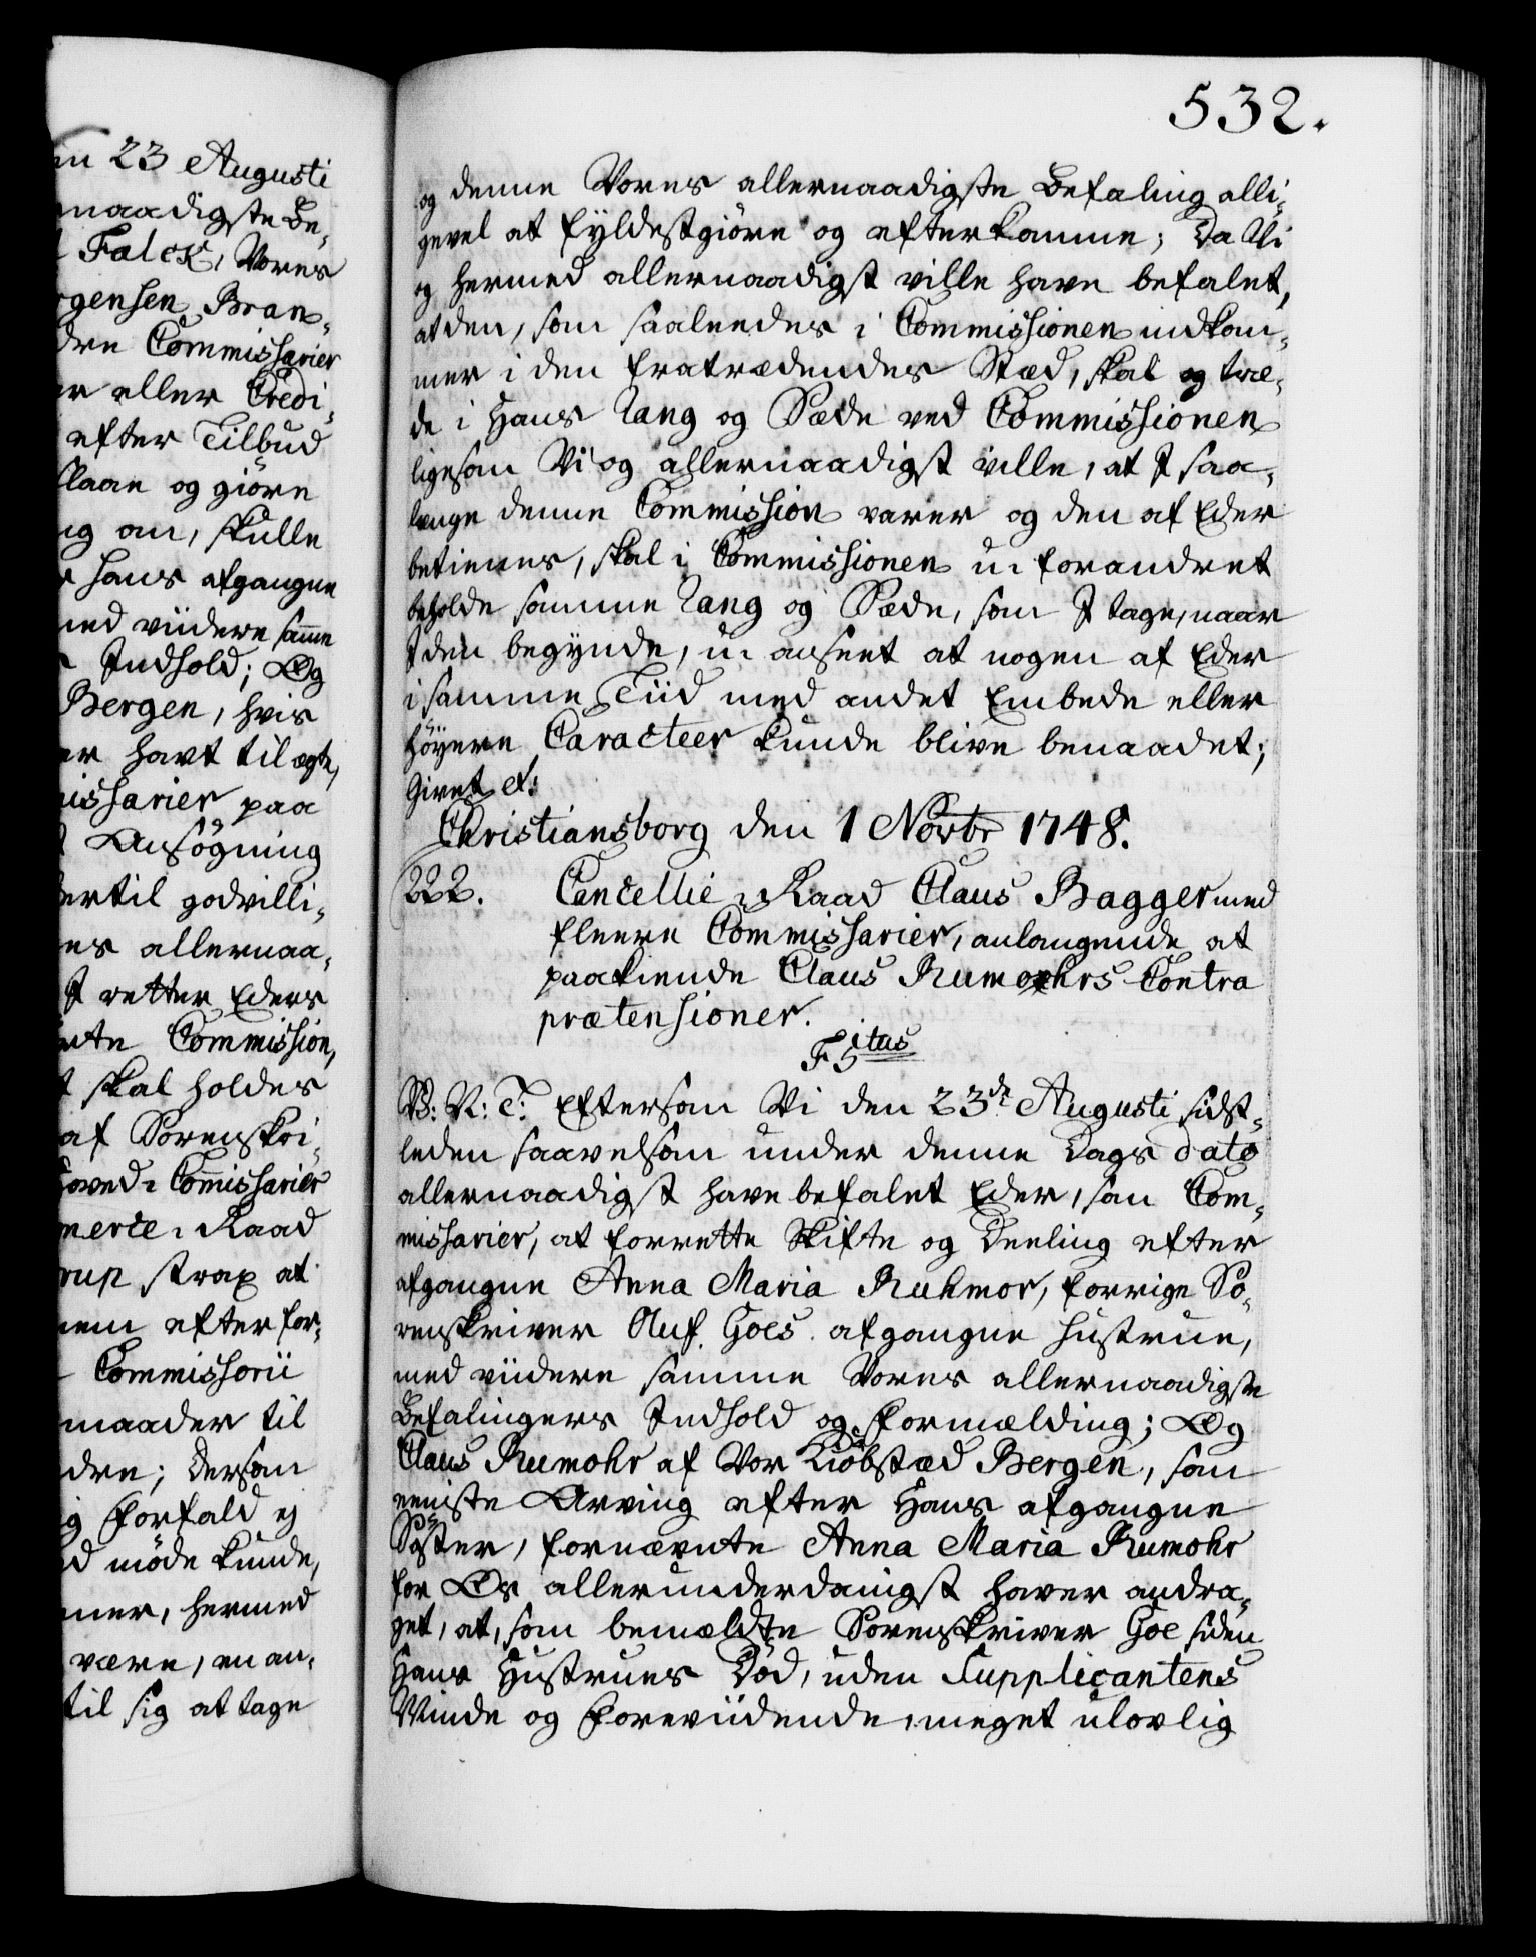 an 23 Augusti
naadigste Be¬
l Falck, Vores
rgensen Bran¬
dre Commissarier
er eller Credi¬
efter Tilbud
slaae og giøre
ng an, skulle
r hans afgangne
med viidere samme
s Indhold; Og
Bergen, hvis
er havt til ægte,
missarier paa
t Ansøgning
hertil godvilli¬
es allernaa¬
I retter Eders
nte Commission,
t skal holdes
af Sorenskri¬
hoved Commissarier
merce-Raad
rup strax at
nem efter for¬
Commissorii
maader til
dre; Dersom
ig Forfald ej
d møde kunde,
mer, hermed
være, en an¬
til sig at tage
532.
og denne Vores allernaadigste Befaling alli¬
gevel at fyldestgiøre og efterkomme; Da Vi
og hermed allernaadigst ville have befalet,
at den, som saaledes i Commissionen indkom¬
mer i den fratrædendes Stæd, skal og træ¬
de i Hans Rang og Sæde ved Commissionen
ligesom Vi og allernaadigst ville, at I saa
længe denne Commission varer og den af Eder
betienes, skal i Commissionen u-forandret
beholde samme Rang og Sæde, som I tage, naar
I den begynde, u-anseet at nogen af Eder
i samme Tiid med andet Embede eller
høyere Caracteer kunde blive benaadet;
Givet etc:
Christiansborg den 1 Novbr 1748.
222. Cancellie-Raad Claus Bagger med
fleere Commissarier, anlangende at
paakiende Claus Rumohrs Contra
prætensioner.
F 5itus
V: V: T: Eftersom Vi den 23de Augusti sidst¬
leden saavelsom under denne Dags dato
allernaadigst have befalet Eder, som Com¬
missarier, at forrette Skifte og Deeling efter
afgangne Anna Maria Ruhmor, forrige So¬
renskriver Auf. Goes afgangne Hustrue,
med viidere samme Vores allernaadigste
Befalingers Indhold og Formælding; Og
Claus Rumohr af Vor Kiøbstæd Bergen, som
eeniste Arving efter Hans afgangne
Søster, fornævnte Anna Maria Rumohr
for Os allerunderdanigst haver andra¬
get, at, som bemældte Sorenskriver Goe siden
Hans Hustrues Død, uden Supplicantens
Minde og Foreviidende, meget ulovlig